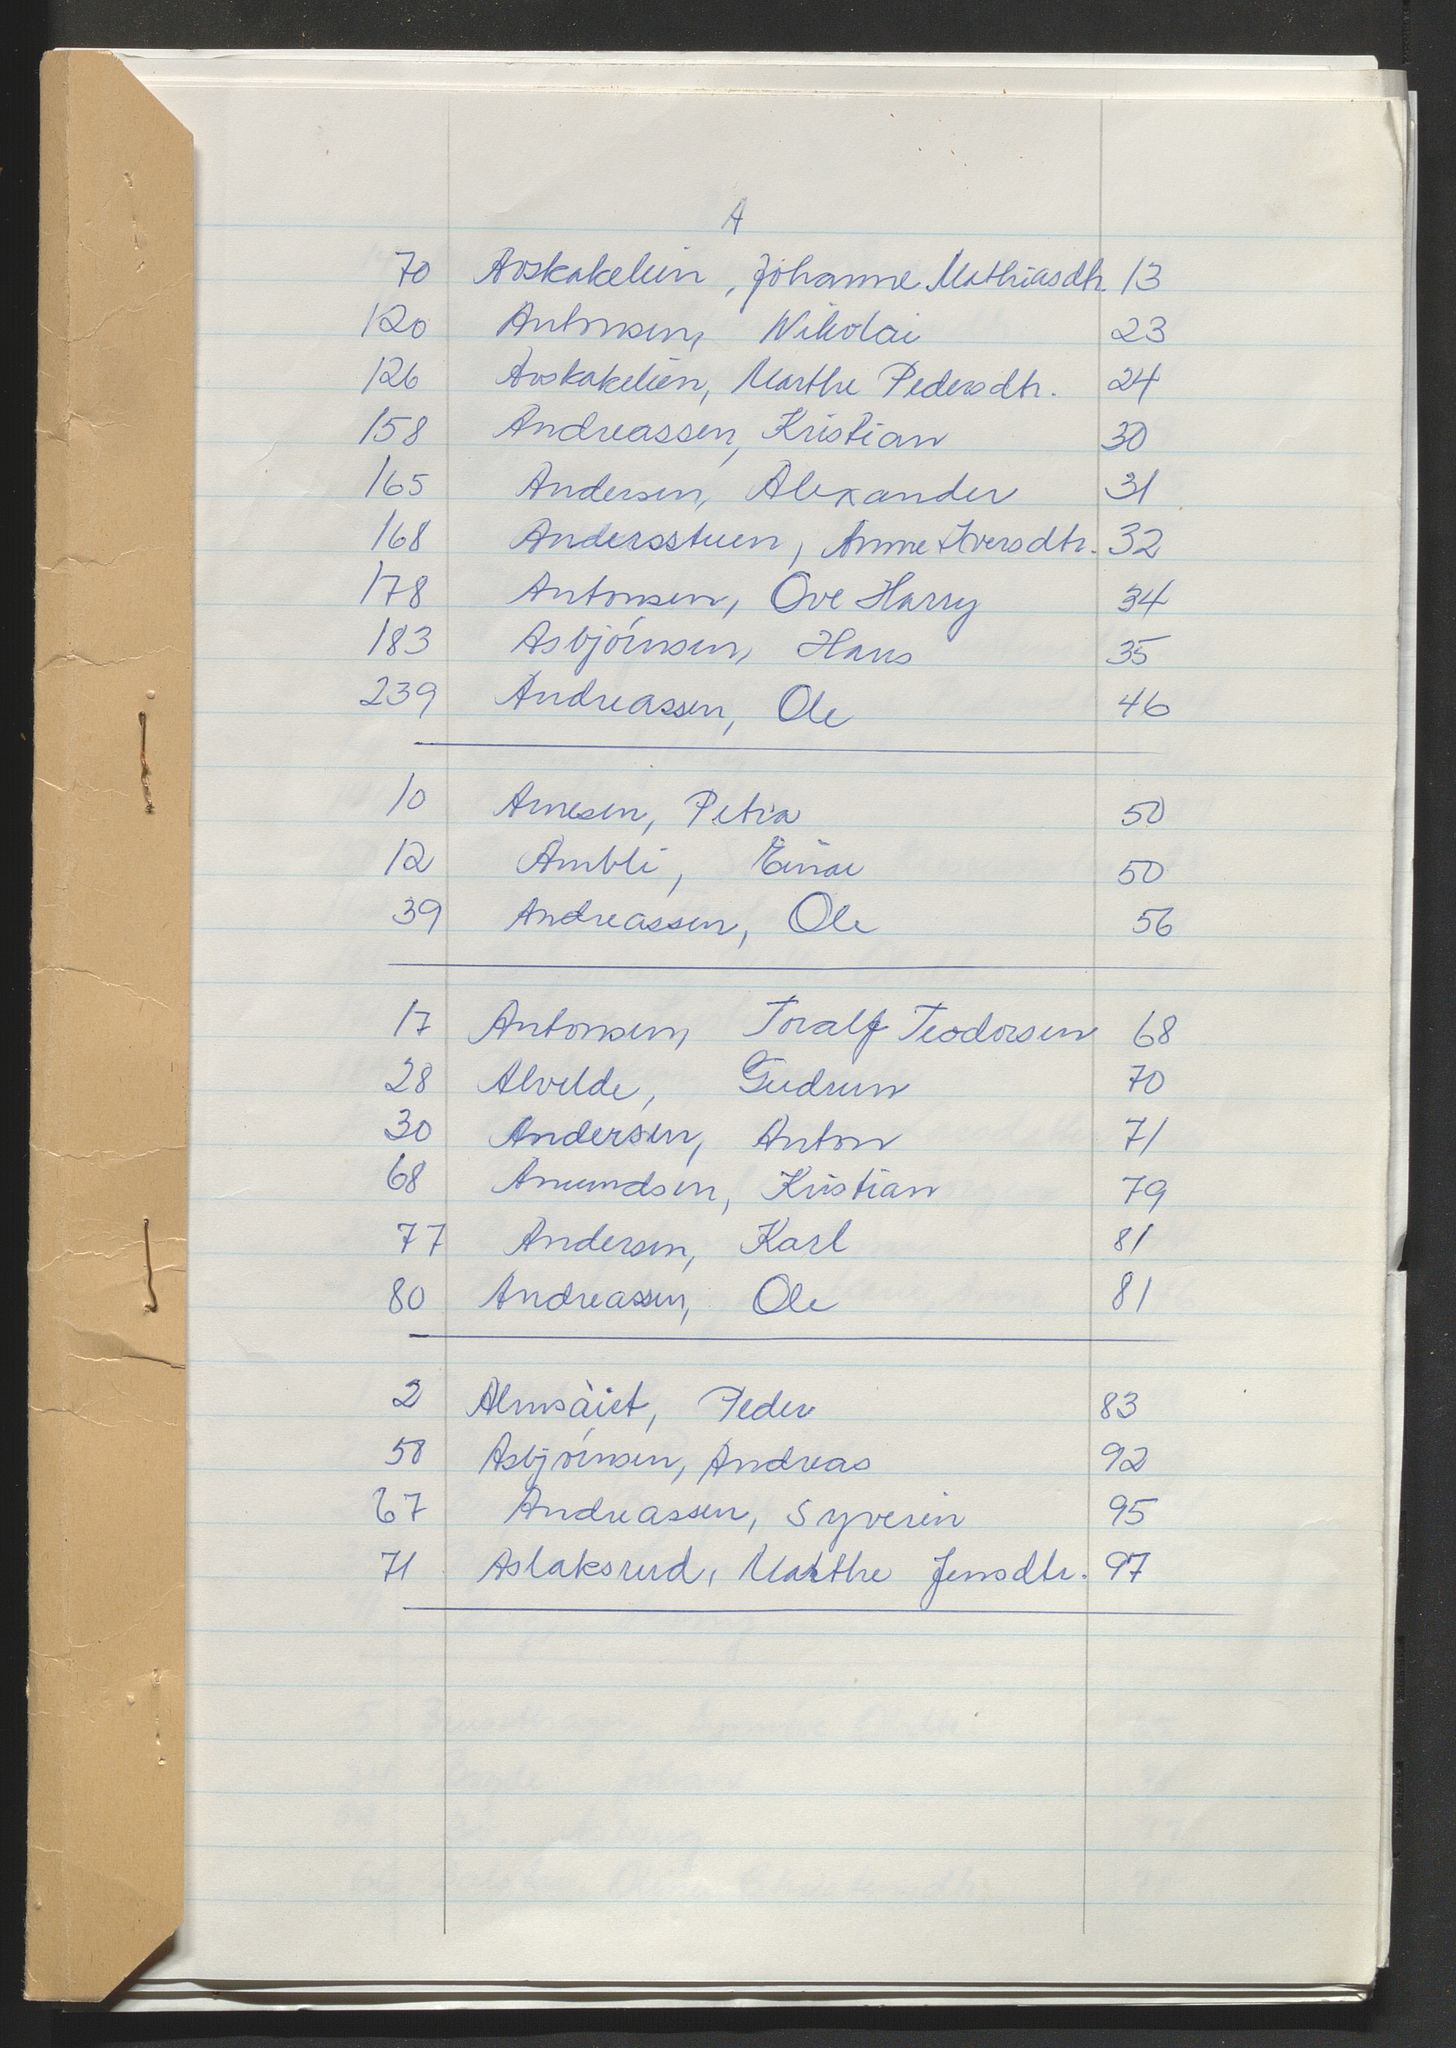 A
70 Avskakelien, Johanne Mathiasdtr. 13
120 Antonsen, Nikolai 23
126 Avskakelien, Marthe Pedersdtr. 24
158 Andreassen, Kristian 30
165 Andersen, Alexander 31
168 Andersstuen, Anne Iversdtr. 32
178 Antonsen, Ove Harry 34
183 Asbjörnsen, Hans 35
239 Andreassen, Ole 46
10 Arnesen, Petra 50
12 Ambli, Einar 50
39 Andreassen, Ole 56
17 Antonsen, Toralf Teodorsen 68
28 Alvilde, Gudrun 70
30 Andersen, Anton 71
68 Amundsen, Kristian 79
77 Andersen, Karl 81
80 Andreassen, Ole 81
2 Peder 83
58 Asbjörnsen, Andreas 92
67 Andreassen, Syverin 95
71 Aslaksrud, Marthe Jensdtr. 97